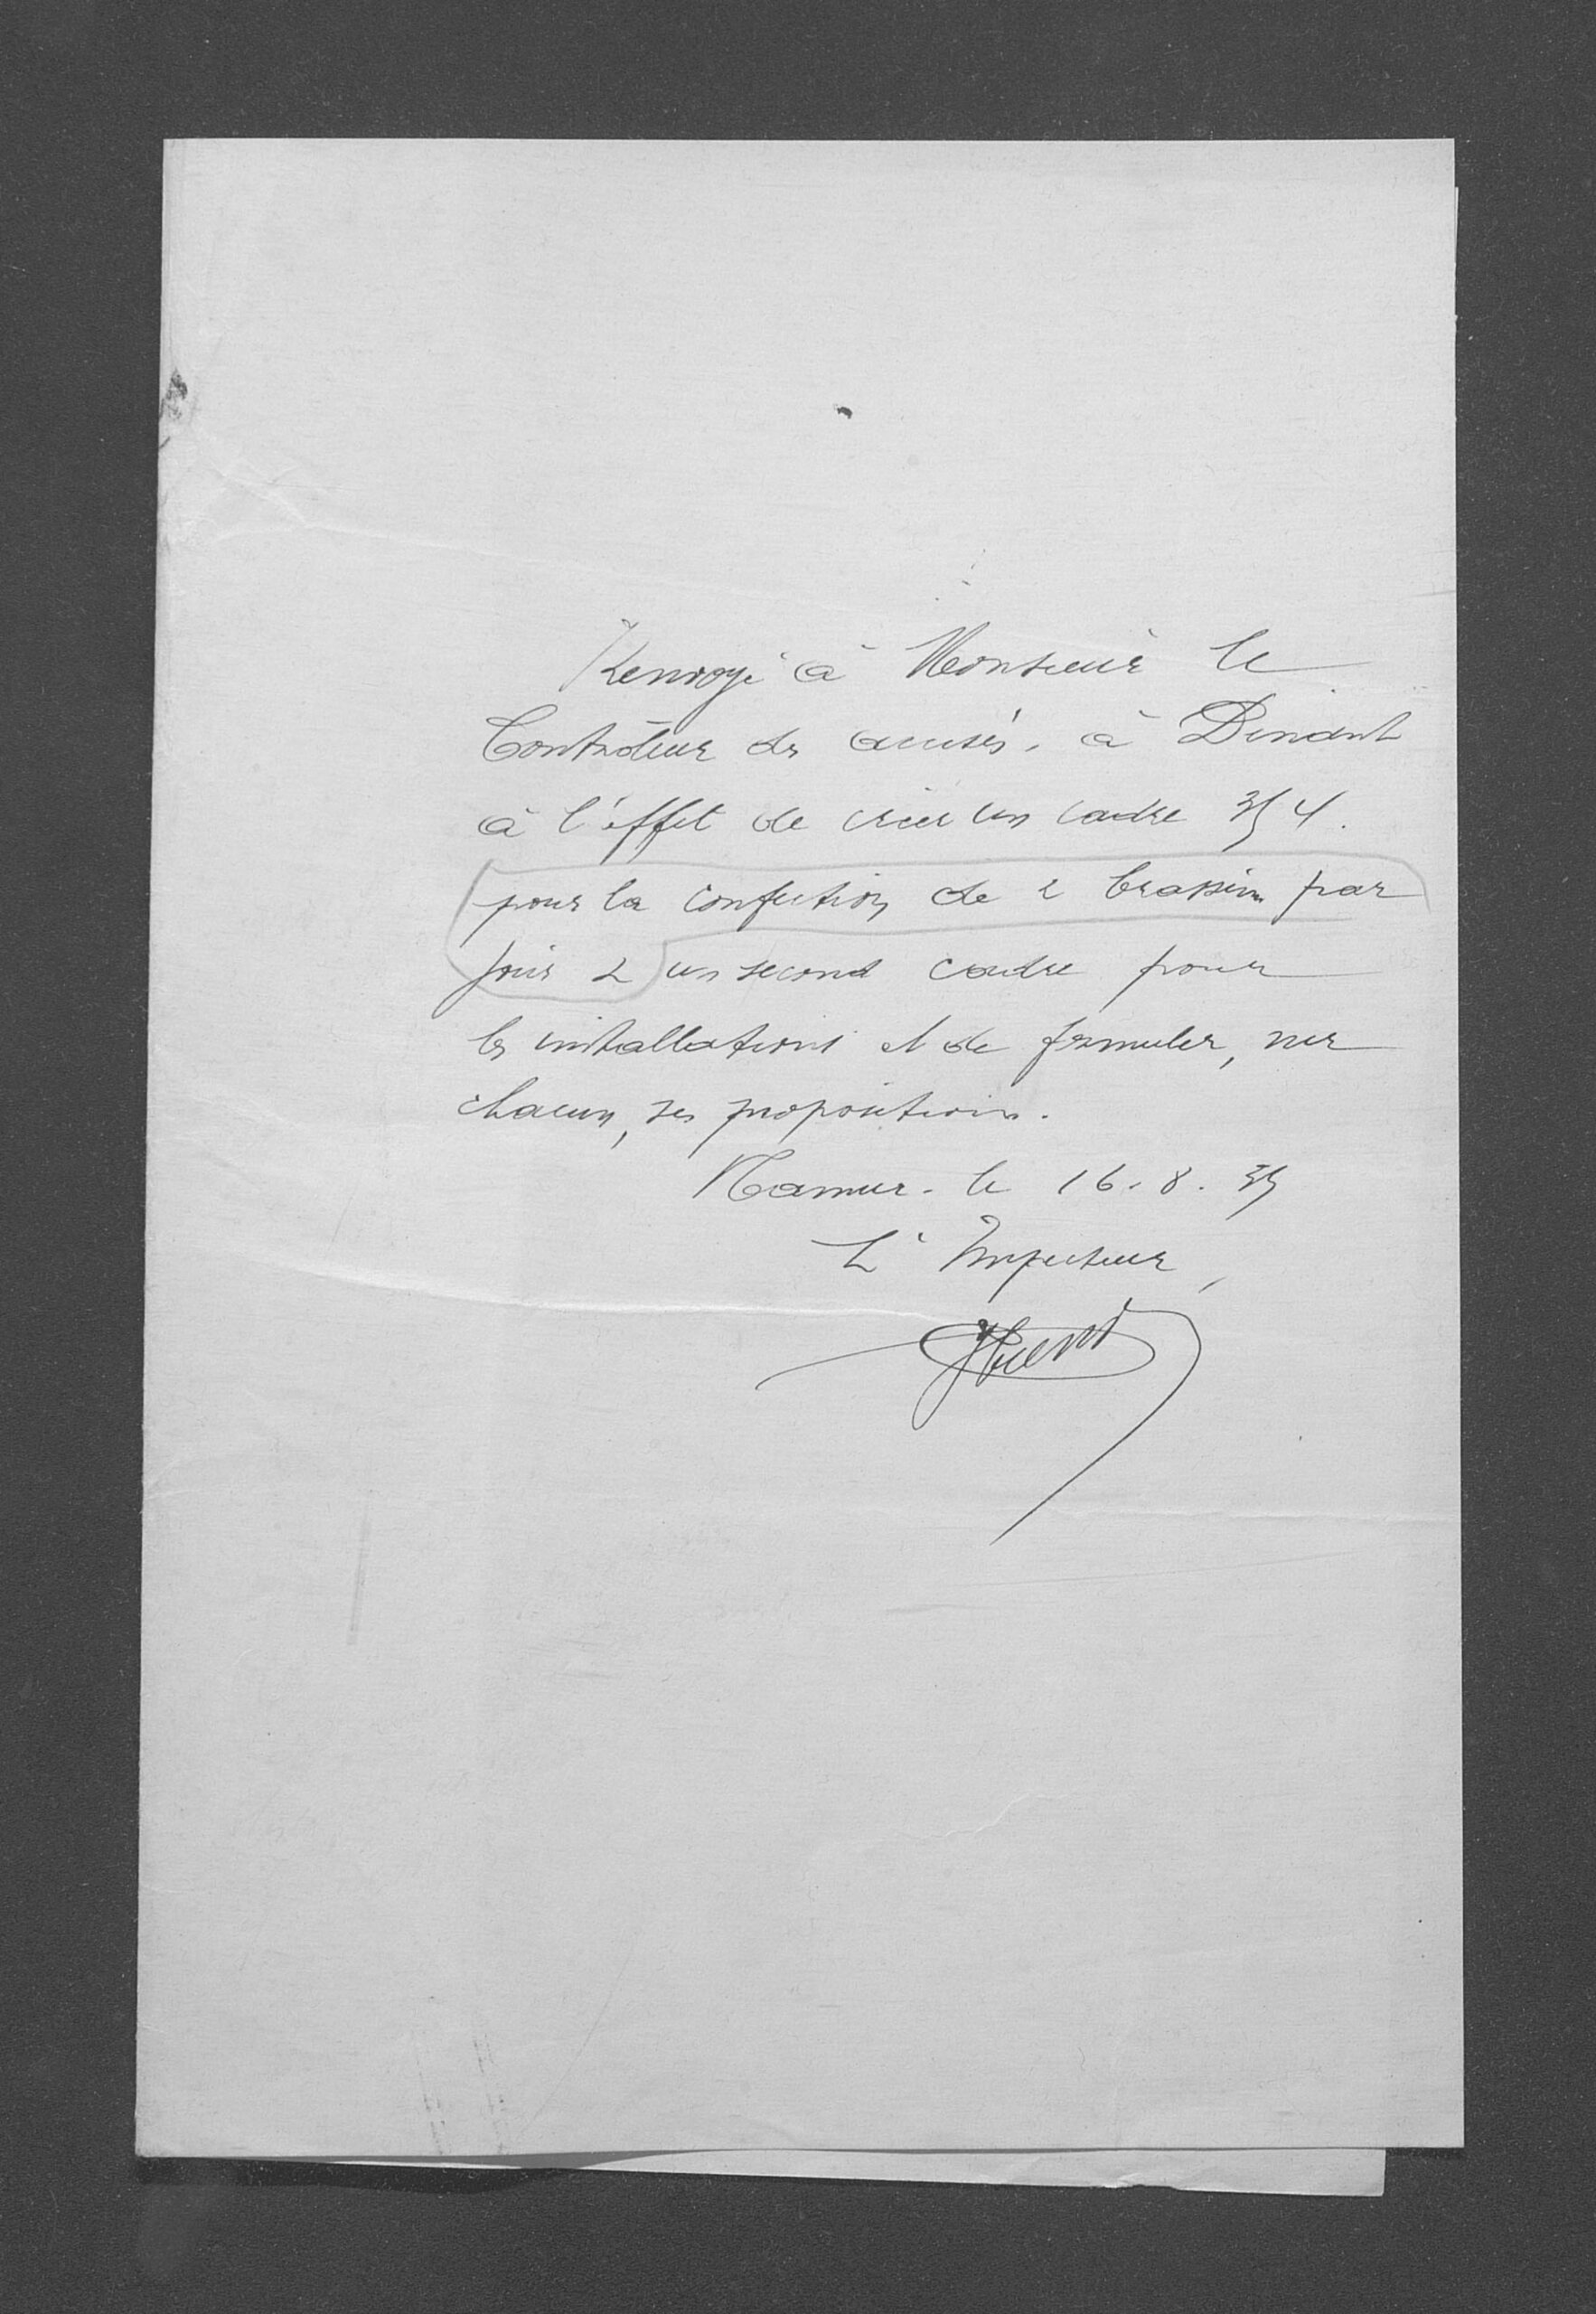 Renvoyé à Monsieur le
Contrôleur des accises. à Dinant
à l'effet de créer un cadre 354.
pour la confection de 2 brassins par
jour & un second cadre pour
les installations et de formuler, sur
chacun, ses propositions.
Namur. le 16.8.35
L'Inspecteur,